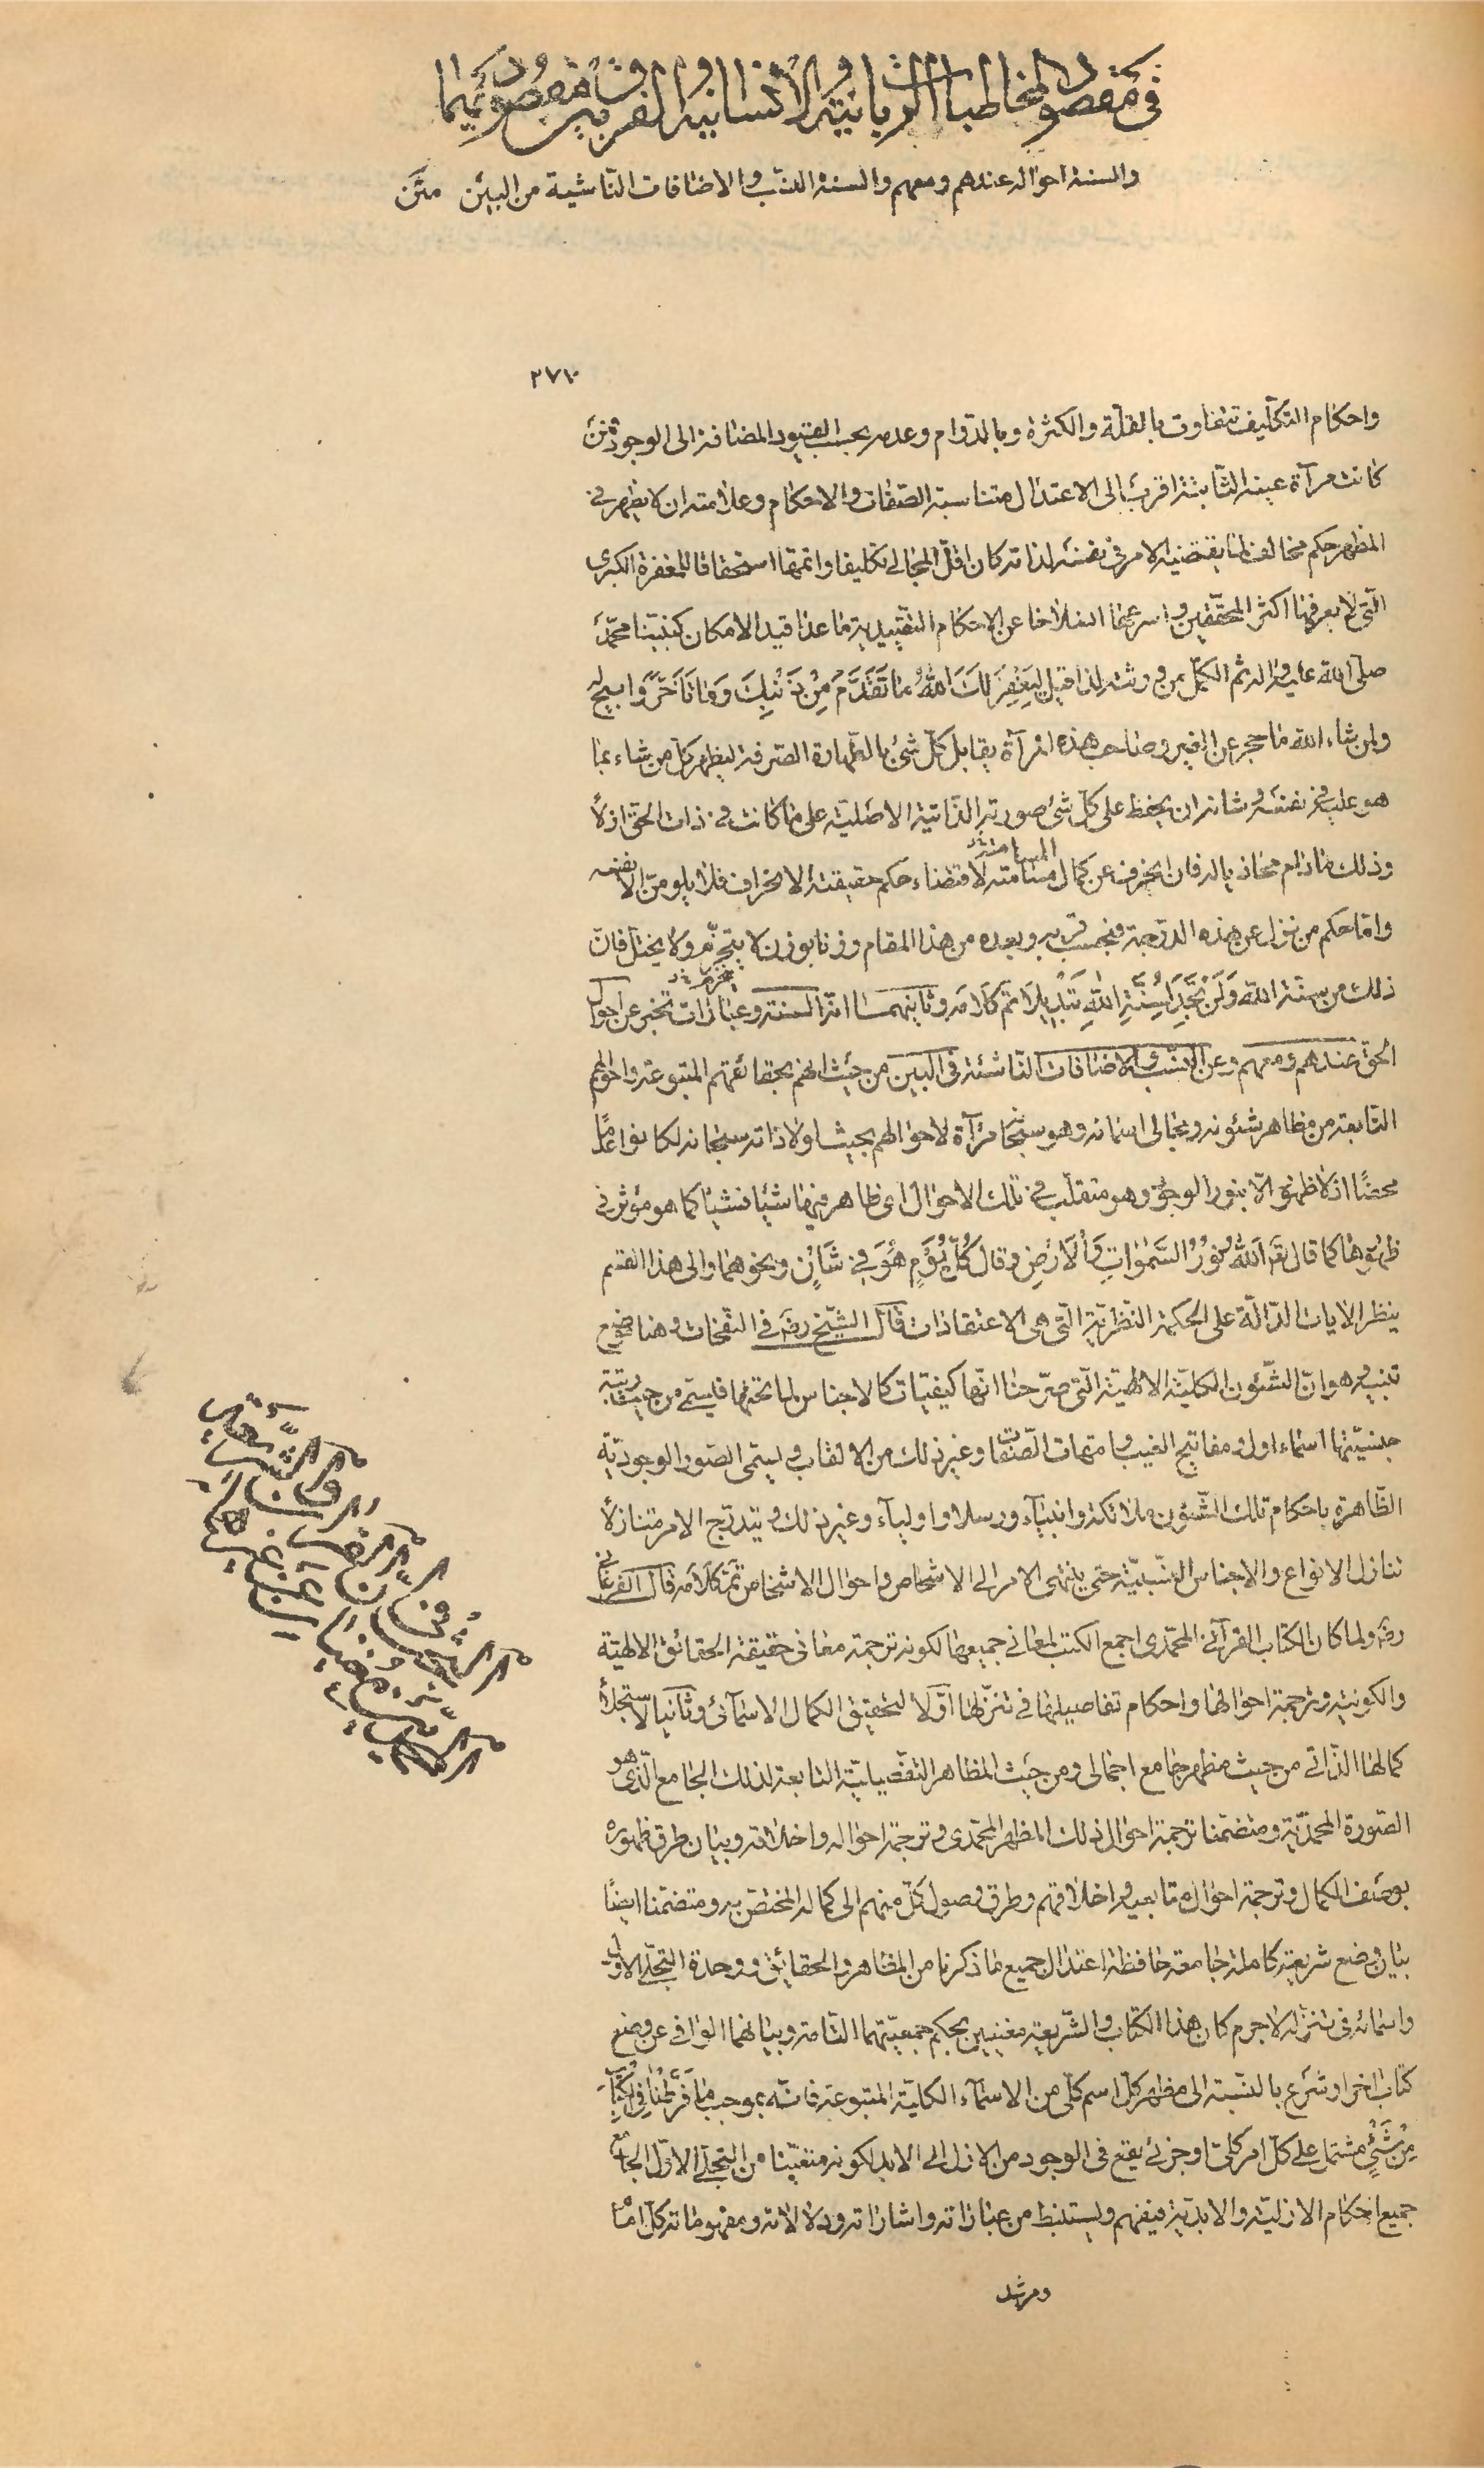 في مقصود المخاطبات الربانية والانسانية والفرق بين مقصوديهما
والسنة احواله عندهم ومعهم والسنة النسب والاضافات الناشية من البين متن
٢٧٧
واحكام التكليف تتفاوت بالقلة والكثرة وبالدوام وعدمه بحسب القيود المضافة الى الوجود فمن
كانت مرآة عينه الثابتة اقرب الى الاعتدال متناسبة الصفات والاحكام وعلامته ان لا يظهر في
المظهر حكم مخالف لما يقتضيه الامر في نفسه لذاته كان اقل المجالي تكليفا واتمها استحقاقا للمغفرة الكبرى
التي لا يعرفها اكثر المحققين واسرعها انسلاخا عن الاحكام التقييدية ما عدا قيد الامكان كنبينا محمد
صلى الله عليه واله ثم الكمل من ورثته لذا قيل لِيَغْفِرَ لَكَ اللهُ مَا تَقَدَّمَ مِنْ ذَنْبِكَ وَمَا تَأَخَّرَ وابيح له
ولمن شاء الله ما حجر عن الغير وصاحب هذه المرآة يقابل كل شئ بالطهارة الصرفة ليظهر كل من شاء بما
هو عليه في نفسه وشانه ان يحفظ على كل شئ صورته الذاتية الاصلية على ما كانت في ذات الحق ازلاً
وذلك ما دام محاذيا له فان انحرف عن كمال مسامتته لاقتضاء حكم حقيقته الانحراف فلا يلومن الا نفسه
واما حكم من نزل عن هذه الدرجة فبحسب قربه وبعده من هذا المقام وزنا بوزن لا ينجزم ولا يختل فان
ذلك من سنة الله وَلَنْ تَجِدَ لِسُنَّةِ اللهِ تَبْدِيلا تم كلامه وثانيهما انه السنة وعبارات تخبر عن احوال
الحق عندهم ومعهم وعن النسب والاضافات الناشئة في البين من حيث انهم بحقائقهم المتبوعة واحوالهم
التابعة من مظاهر شئونه ومجالى اسمائه وهو سبحانه مرآة لاحوالهم بحيث لولا ذاته سبحانه لكانوا عدمًا
محضًا اذ لا ظهور الا بنور الوجود وهو متقلب في تلك الاحوال اى ظاهر فيها شيئا فشيئا كما هو مؤثر في
ظهورها كما قال تع اَللهُ نُورُ السَّمٰوَاتِ وَالْاَرْضِ وقال كُلَّ يَوْمٍ هُوَ فِي شَأْنٍ ونحوهما والى هذا القسم
ينظر الايات الدالة على الحكمة النظرية التى هى الاعتقادات قال الشيخ رضه في النفحات وهنا
تنبيه وهو ان الشئون الكلية الالهية التى صرحنا انها كيفيات كالاجناس لما تحتها فليسمى من حيث رتبة
جنسيتها اسماء اول ومفاتيح الغيب وامهات الصفات وغير ذلك من الالقاب ويسمى الصور الوجودية
الظاهرة باحكام تلك الشئون ملائكة وانبياء ورسلا واولياء وغير ذلك ويتدرج الامر متنازلاً
تنازل الانواع والاجناس النسبية حتى ينتهى الامر الى الاشخاص واحوال الاشخاص تم كلامه قال الفرغانى
رضه ولما كان الكتاب القرآنى المحمدى اجمع الكتب لمعانى جميعها لكونه ترجمة معانى حقيقة الحقائق الالهية
والكونية وترجمة احوالها واحكام تفاصيلها في تنزلها اولا لتحقيق الكمال الاسمائى وثانيا لاستجلاء
كمالها الذاتى من حيث مظهر جامع اجمالى ومن حيث المظاهر التفصيلية التابعة لذلك الجامع الذى هو
الصورة المحمدية ومتضمنا ترجمة احوال ذلك المظهر المحمدى وترجمة احواله واخلاقه وبيان طرق ظهوره
بوصف الكمال وترجمة احوال متابعيه واخلاقهم وطرق وصول كل منهم الى كماله المختص به ومتضمنا ايضًا
بيان وضع شريعة كاملة جامعة حافظة اعتدال جميع ما ذكرنا من المظاهر والحقائق ووحدة التجلى الاول
واسمائه في تنزله لا جرم كان هذا الكتاب والشريعة مغنيين بحكم جمعيتهما التامة وبيانهما الوافى عن وضع
كتاب اخر او شرع بالنسبة الى مظهر كل اسم كلى من الاسماء الكلية المتبوعة فانه بموجب مَا فَرَّطْنَا فِي الْكِتَابِ
مِنْ شَيْءٍ مشتمل على كل امر كلى او جزئى يقع في الوجود من الازل الى الابد لكونه متعينا من التجلى الاول الجامع
جميع احكام الازلية والابدية فيفهم ويستنبط من عباراته واشاراته ودلالاته ومفهوماته كل امام
ومرشد